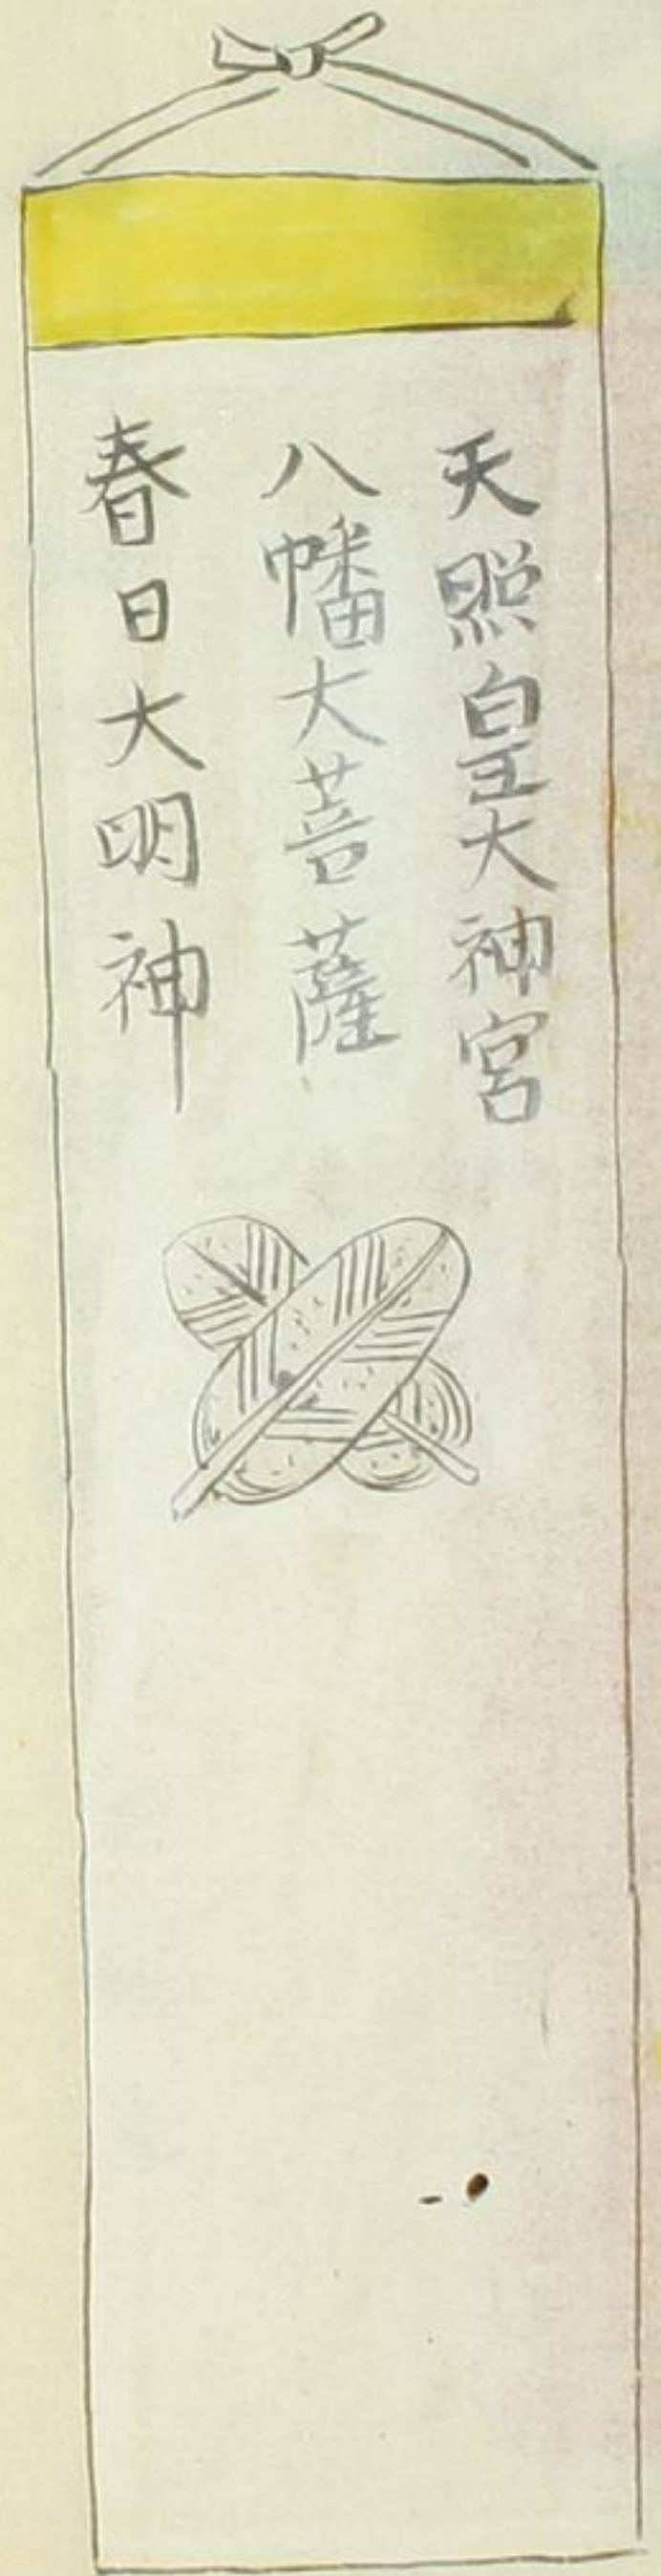 天照皇大神宮
八幡大菩薩
春日大明神